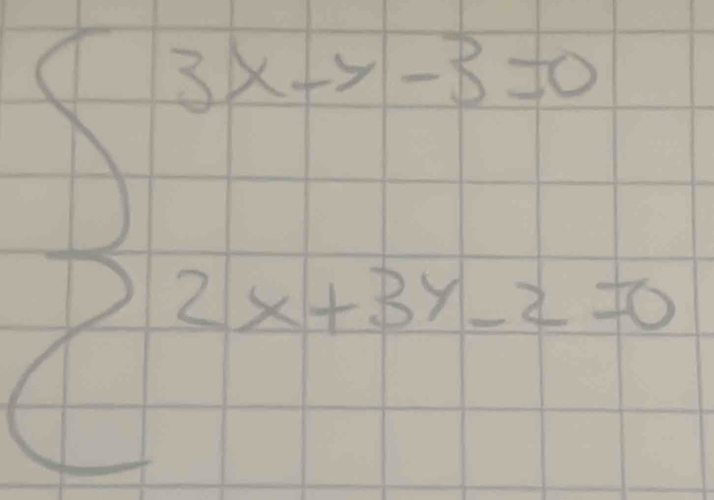 3x-y-3=0
2x+3y-2=0